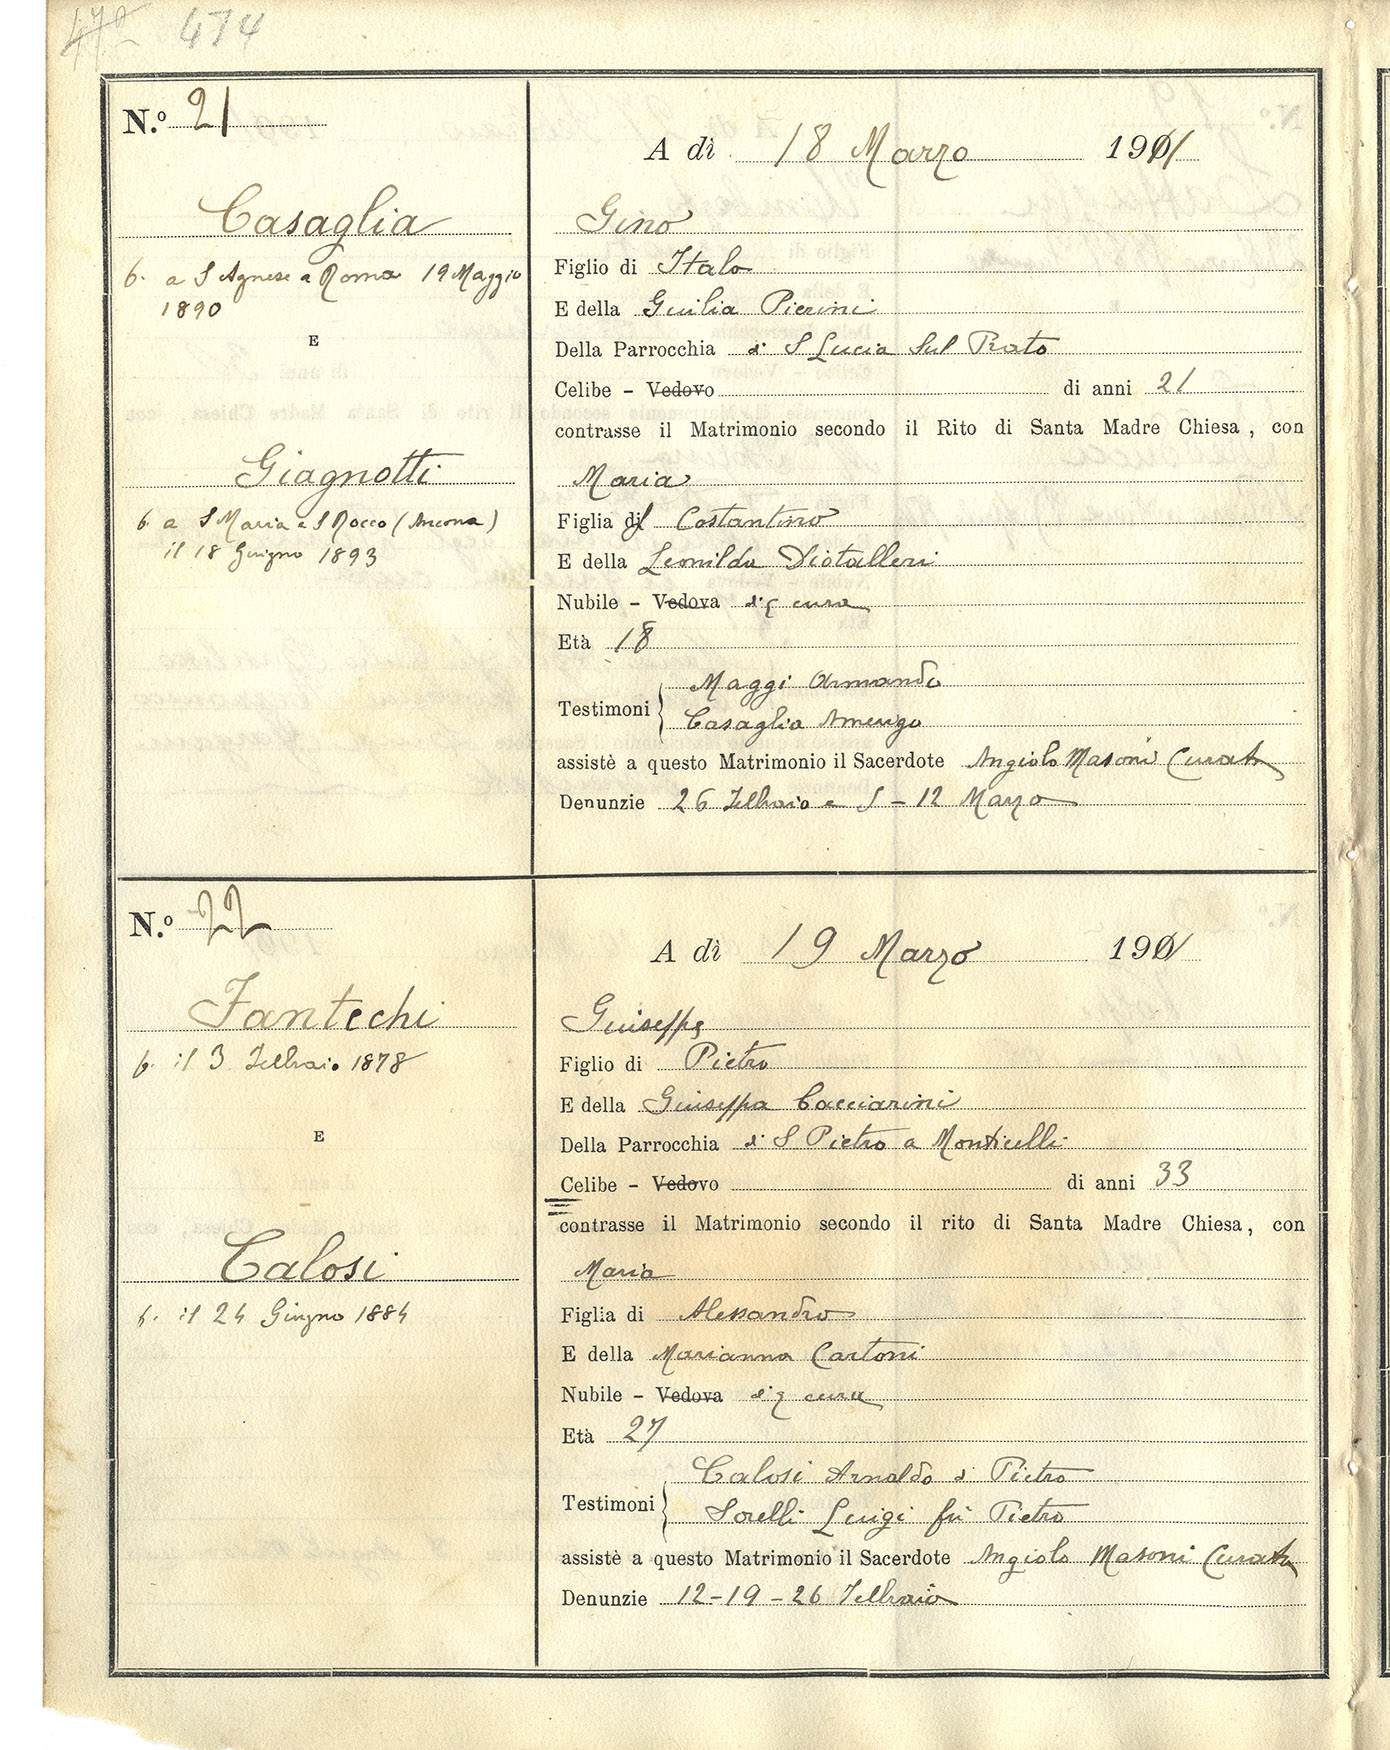 474
N.º 21
A dì 18 Marzo 1911
Casaglia
b. a S Agnese a Roma 19 Maggio
1890
E
Giagnotti
b. a S Maria e S Rocco (Ancona)
il 18 Giugno 1893
Gino
Figlio di Italo
E della Giulia Pierini
Della Parrocchia di S Lucia sul Prato
Celibe - Vedovo di anni 21
contrasse il Matrimonio secondo il Rito di Santa Madre Chiesa, con
Maria
Figlia di Costantino
E della Leonilda Diotalleri
Nubile - Vedova di q cura
Età 18
Testimoni Maggi Armando
Casaglia Amerigo
assistè a questo Matrimonio il Sacerdote Angiolo Masoni Curato
Denunzie 26 Febbraio e 5 - 12 Marzo
N.º 22
A dì 19 Marzo 1911
Fantechi
b. il 3 Febbraio 1878
E
Calosi
b. il 24 Giugno 1884
Giuseppe
Figlio di Pietro
E della Giuseppa Cacciarini
Della Parrocchia di S Pietro a Monticelli
Celibe - Vedovo di anni 33
contrasse il Matrimonio secondo il rito di Santa Madre Chiesa, con
Maria
Figlia di Alessandro
E della Marianna Cartoni
Nubile - Vedova di q cura
Età 27
Testimoni Calosi Arnaldo di Pietro
Sorelli Luigi fu Pietro
assistè a questo Matrimonio il Sacerdote Angiolo Masoni Curato
Denunzie 12-19-26 Febbraio